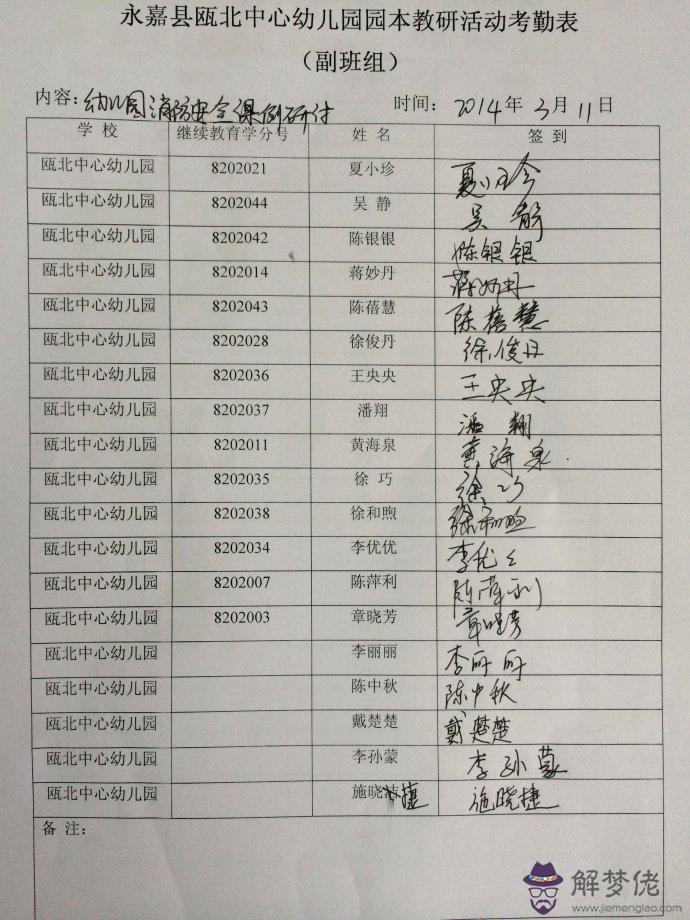 永嘉县瓯北中心幼儿园园本教研活动考勤表
（副班组）
内容：幼儿园消防安全课例研讨 时间：2014年3月11日
学 校 继续教育学分号 姓 名 签 到
瓯北中心幼儿园 8202021 夏小珍 夏小珍
瓯北中心幼儿园 8202044 吴 静 吴静
瓯北中心幼儿园 8202042 陈银银 陈银银
瓯北中心幼儿园 8202014 蒋妙丹 蒋妙丹
瓯北中心幼儿园 8202043 陈蓓慧 陈蓓慧
瓯北中心幼儿园 8202028 徐俊丹 徐俊丹
瓯北中心幼儿园 8202036 王央央 王央央
瓯北中心幼儿园 8202037 潘翔 潘翔
瓯北中心幼儿园 8202011 黄海泉 黄海泉
瓯北中心幼儿园 8202035 徐 巧 徐巧
瓯北中心幼儿园 8202038 徐和煦 徐和煦
瓯北中心幼儿园 8202034 李优优 李优优
瓯北中心幼儿园 8202007 陈萍利 陈萍利
瓯北中心幼儿园 8202003 章晓芳 章晓芳
瓯北中心幼儿园 李丽丽 李丽丽
瓯北中心幼儿园 陈中秋 陈中秋
瓯北中心幼儿园 戴楚楚 戴楚楚
瓯北中心幼儿园 李孙蒙 李孙蒙
瓯北中心幼儿园 施晓捷 施晓捷
备 注：
解梦佬
www.jiemenglao.com